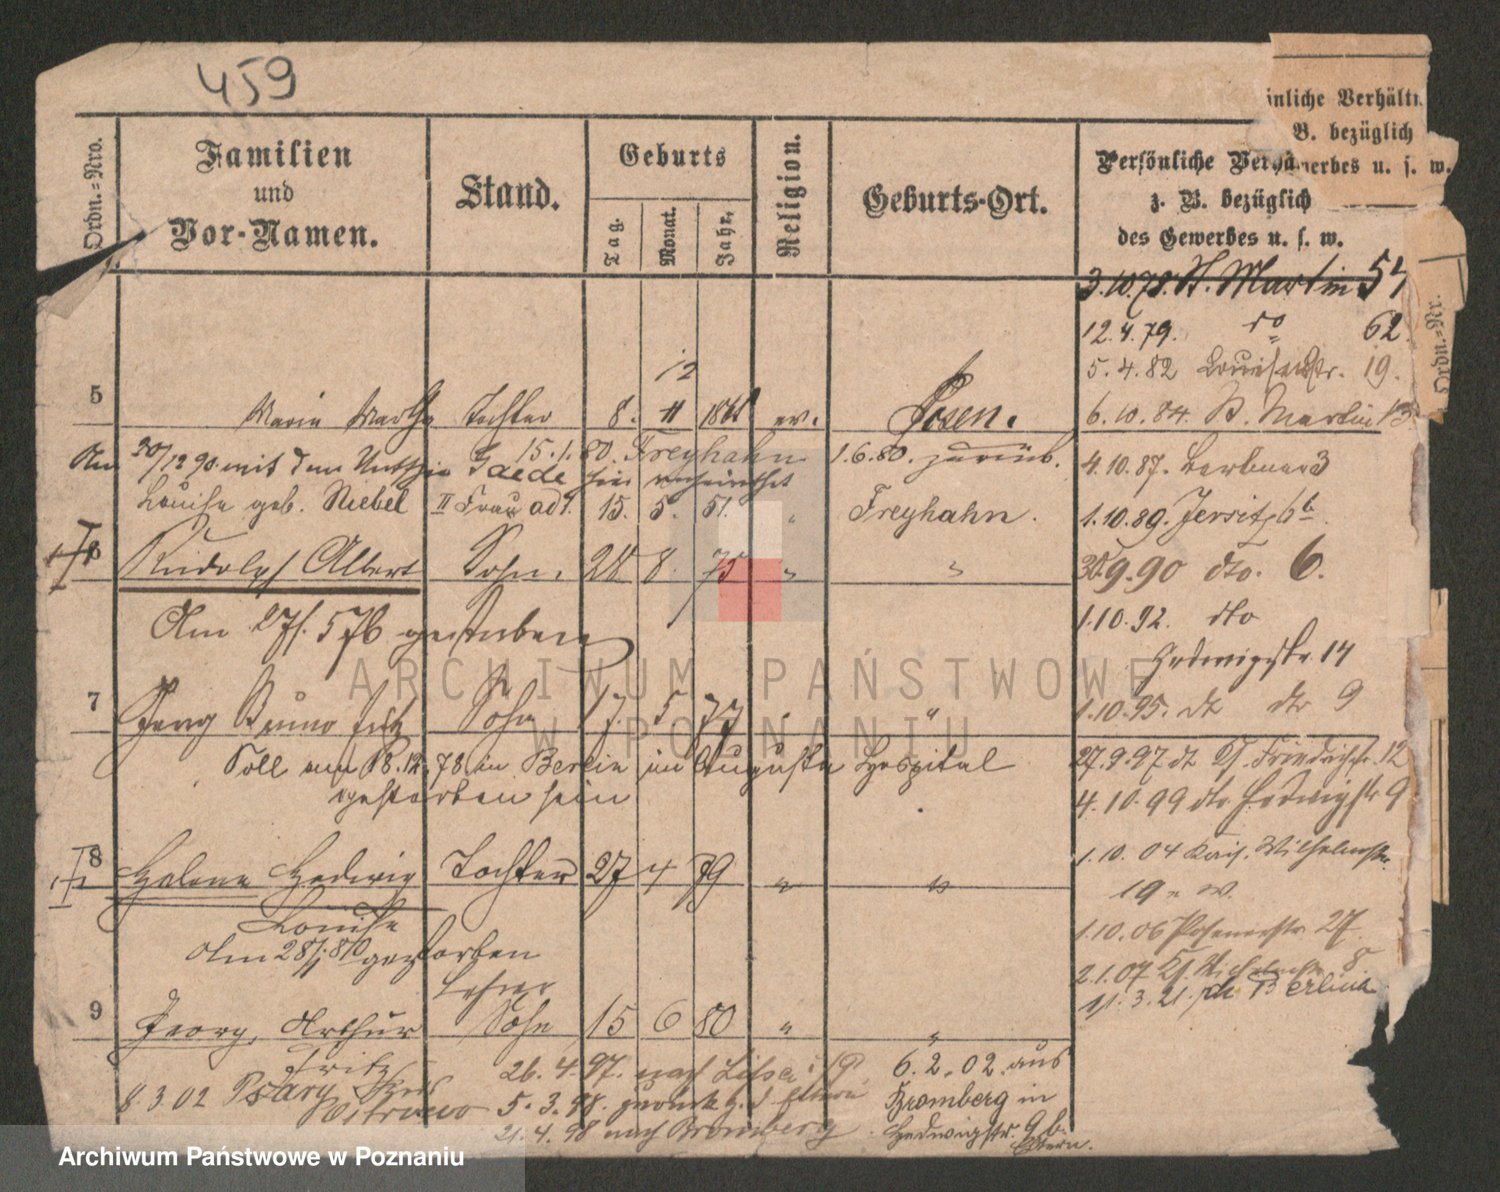 459
Ordn.=Nro.
Familien
und
Vor-Namen.
Stand.
Geburts
Tag.
Monat.
Jahr.
Religion.
Geburts-Ort.
Persönliche
z. B. bezüglich
des Gewerbes u. s. w.
B. bezüglich
u. s. w.
3.10.78. St. Martin 57
12.4.79. do 62.
5.4.82 Louisenstr. 19.
6.10.84. St. Martin 13
4.10.87. 3
1.10.89. Jersitz 6b
30.9.90 dto. 6.
1.10.92. dto
Hedwigstr. 14
1.10.95. dto 9
27.9.97 Friedrichstr. 12
4.10.99 dto Hedwigstr 9
1.10.04 Kais. Wilhelmstr.
19
1.10.06 Posenerstr 27.
2.1.07 8
11.3.21. Berlin
5
12
Maria Martha Tochter 8. 11 ev. Posen.
Am 30/12 90. mit dem
15.1.80. Freyhahn 1.6.80. zurück.
Gaede hier verheirathet
Louise geb. Niebel II Frau ad 1. 15. 5. 51. " Freyhahn.
6 Rudolph Albert Sohn 28 8. 75 " "
Am 27/5 76 gestorben
7 Georg Bruno Fritz Sohn 17. 5 77 " "
Soll am 18.12.78 in Berlin im Augusta Hospital
gestorben sein
8 Helene Hedwig Tochter 27 4 79 " "
Louise
Am 28/1 80 gestorben
Lehrer
9 Georg, Arthur Sohn 15 6 80 " "
Fritz
8.3.02 Psary Kreis
Ostrowo
26.4.97. nach Lissa
5.3.98. zurück z. d. Eltern
21.4.98 nach Bromberg
6.2.02. aus
Bromberg in
Hedwigstr. 9 b.
Eltern.
ARCHIWUM PAŃSTWOWE
W POZNANIU
Archiwum Państwowe w Poznaniu